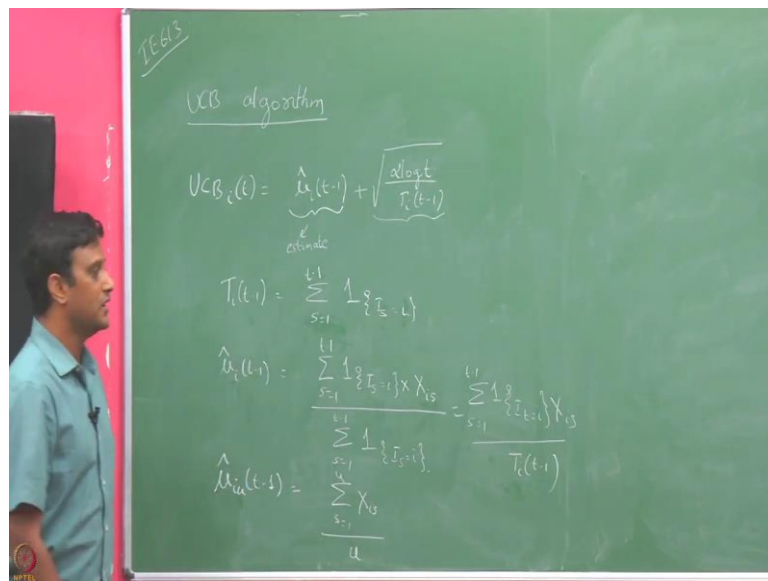 IE613
UCB algorithm
UCB_i(t) = μ̂_i(t-1) + √(αlogt / T_i(t-1))
estimate
T_i(t-1) = Σ_{s=1}^{t-1} 1{I_s=i}
μ̂_i(t-1) = Σ_{s=1}^{t-1} 1{I_s=i} × X_is / Σ_{s=1}^{t-1} 1{I_s=i} = Σ_{s=1}^{t-1} 1{I_t=i} X_is / T_i(t-1)
μ̂_iu(t-1) = Σ_{s=1}^{u} X_is / u
NPTEL